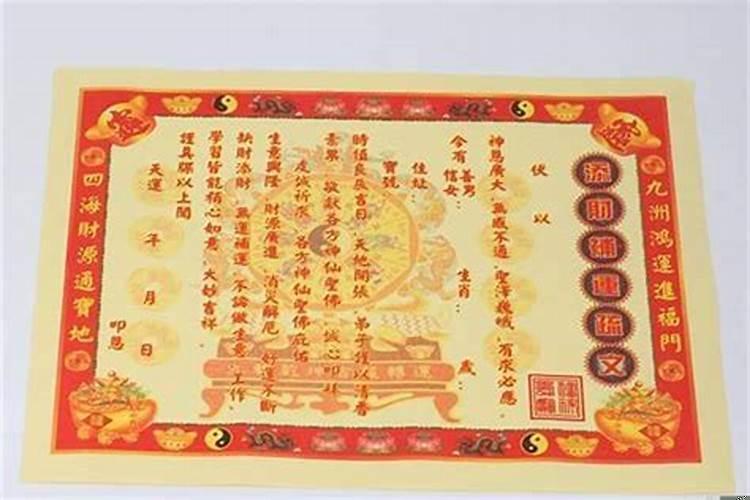 九洲鴻運進福門
添財補運疏文
伏以
神恩廣大 無感不通 聖澤巍峨 有求必應
今有 善男 信女： 生肖： 歲：
住址：
寶號
時值良辰吉日 天地開張 弟子謹以清香
素果 敬獻各方神仙聖佛 誠心叩拜
虔誠祈求 各方神仙聖佛庇佑
生意興隆 財源廣進 消災解厄 好運不斷
缺財添財 無運補運 不論做生意、工作、
學習皆能稱心如意、大妙吉祥。
謹具疏以上聞
天運 年 月 日
叩恩
四海財源通寶地